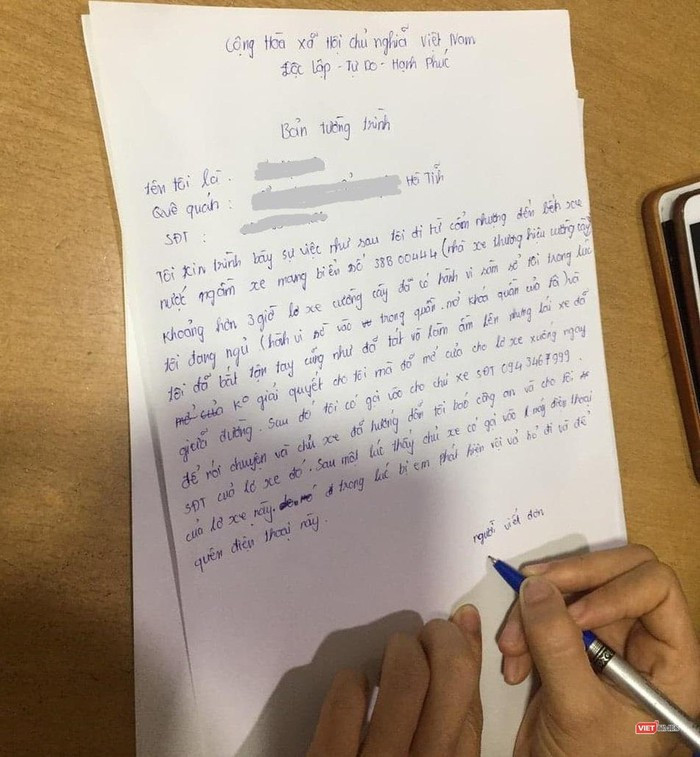 Cộng Hòa xã Hội chủ nghĩa Việt Nam
Độc Lập - Tự Do - Hạnh Phúc
Bản tường trình
Tên tôi là :
Quê quán : Hà Tĩnh
SĐT :
Tôi xin trình bày sự việc như sau Tôi đi từ cẩm nhượng đến bến xe
nước ngầm xe mang biển số 38B 00444 (nhà xe thương hiệu cường cây)
Khoảng hơn 3 giờ lơ xe cường cây đã có hành vi sàm sở tôi trong lúc
tôi đang ngủ (hành vi sờ vào trong quần. mở khoá quần của tôi) và
tôi đã bắt tận tay cũng như đã tát và làm ầm lên nhưng lái xe đã
ko giải quyết cho tôi mà đã mở cửa cho lơ xe xuống ngay
giữa đường. Sau đó tôi có gọi vào cho chủ xe SĐT 0943467999.
để nói chuyện và chủ xe đã hướng dẫn tôi báo công an và cho tôi
SĐT của lơ xe đó. Sau một lúc thấy chủ xe có gọi vào 1 máy điện thoại
của lơ xe này. trong lúc bị em phát hiện vội vả bỏ đi và để
quên điện thoại này.
người viết đơn
VIET